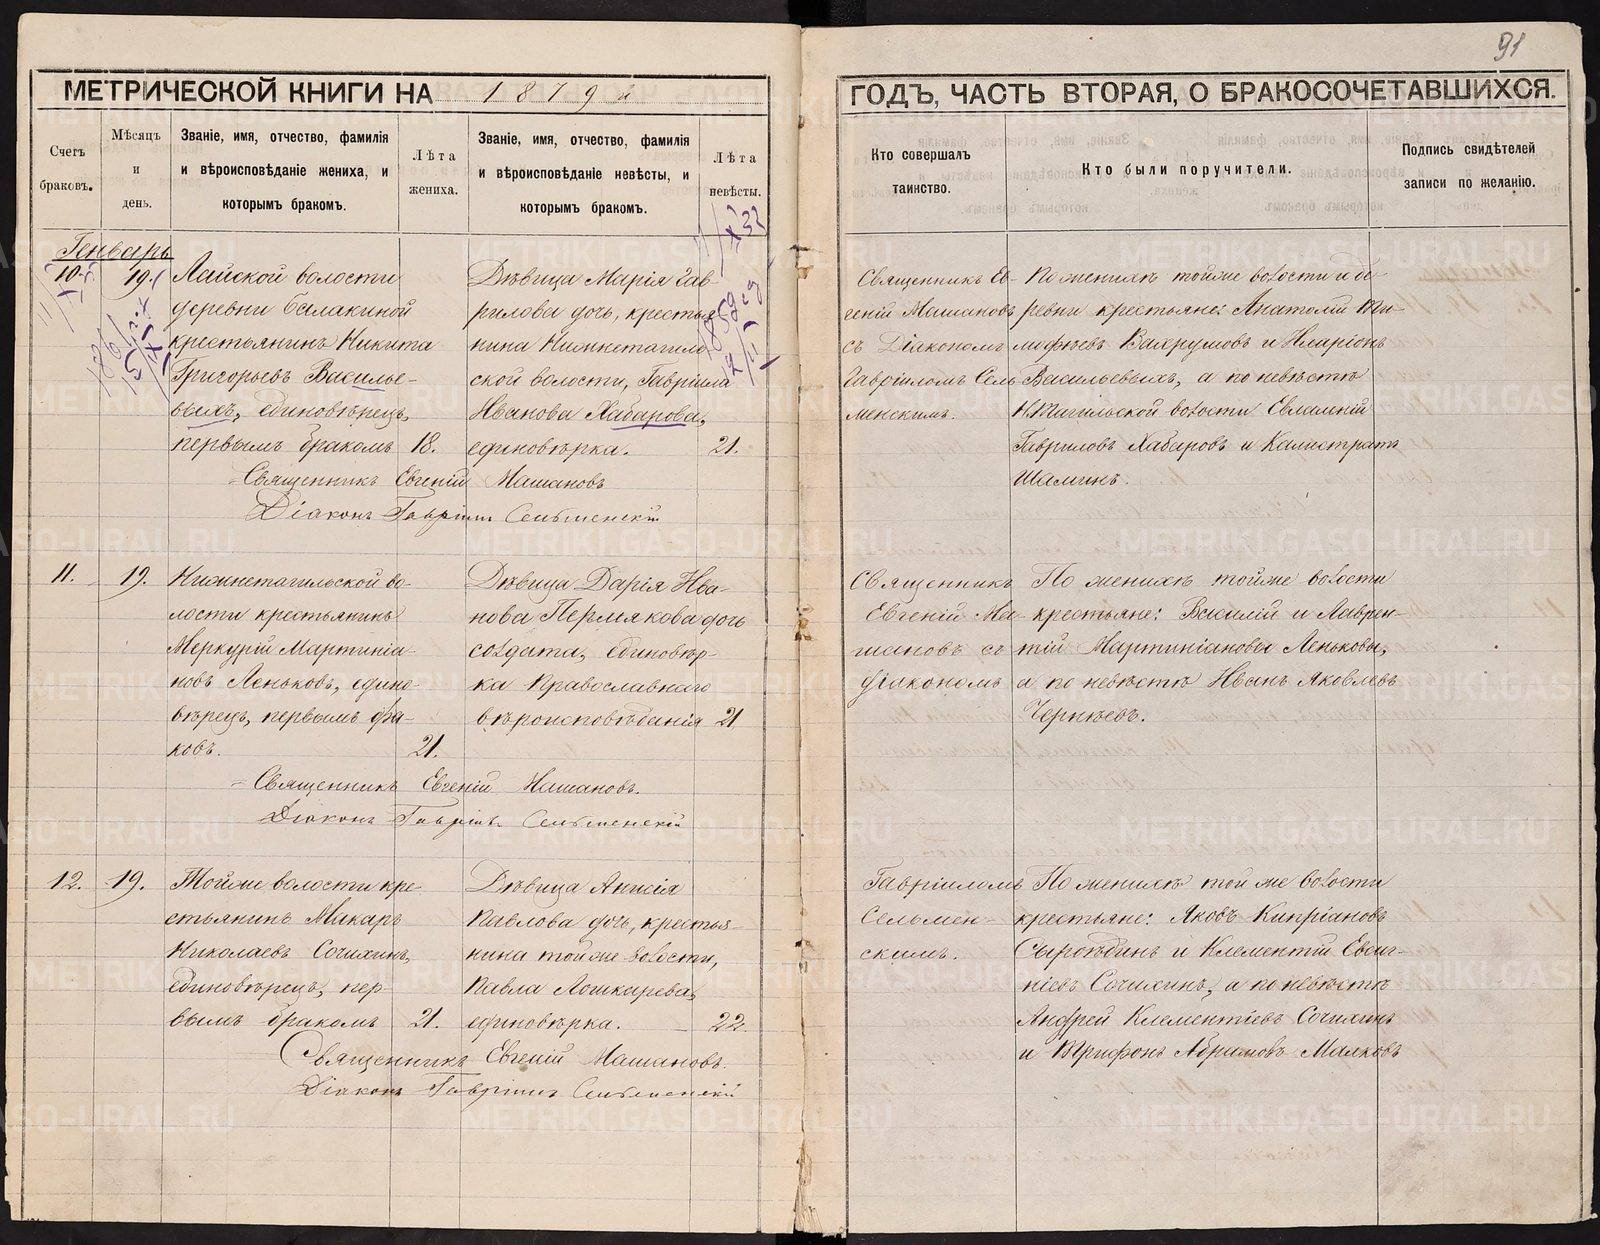 91
МЕТРИЧЕСКОЙ КНИГИ НА 1879 й
ГОДЪ, ЧАСТЬ ВТОРАЯ, О БРАКОСОЧЕТАВШИХСЯ.
Счетъ
браковъ.
Мѣсяцъ
и
день.
Званіе, имя, отчество, фамилія
и вѣроисповѣданіе жениха, и
которымъ бракомъ.
Лѣта
жениха.
Званіе, имя, отчество, фамилія
и вѣроисповѣданіе невѣсты, и
которымъ бракомъ.
Лѣта
невѣсты.
Кто совершалъ
таинство.
Кто были поручители.
Подпись свидѣтелей
записи по желанію.
Генварь
10
19.
Лайской волости
деревни Балакиной
крестьянинъ Никита
Григорьевъ Василье-
выхъ, единовѣрецъ,
первымъ бракомъ
18.
Дѣвица Марія Гав-
рилова дочь, крестья-
нина Нижнетагиль-
ской волости, Гавріила
Иванова Хабарова,
единовѣрка.
21.
Священникъ Ев-
геній Машановъ
съ Діакономъ
Гавріиломъ Сель-
менскимъ.
По женихѣ тойже волости и де-
ревни крестьяне: Анатолій Ти-
мофѣевъ Вахрушовъ и Иларіонъ
Васильевыхъ, а по невѣстѣ
Н.Тагильской волости Евлампій
Гавриловъ Хабаровъ и Калистратъ
Шаминъ.
Священникъ Евгеній Машановъ
Діаконъ Гавріилъ Сельменскій
11.
19.
Нижнетагильской во-
лости крестьянинъ
Меркурій Мартиніа-
новъ Леньковъ, едино-
вѣрецъ, первымъ бра-
комъ.
21.
Дѣвица Дарія Ива-
нова Пермякова дочь
солдата, единовѣр-
ка Православнаго
вѣроисповѣданія
21
Священникъ
Евгеній Ма-
шановъ съ
діакономъ
По женихѣ тойже волости
крестьяне: Василій и Лаврен-
тій Мартиніановы Леньковы,
а по невѣстѣ Иванъ Яковлевъ
Черняевъ.
Священникъ Евгеній Машановъ.
Діаконъ Гавріилъ Сельменскій
12.
19.
Тойже волости кре-
стьянинъ Макаръ
Николаевъ Сочихинъ,
единовѣрецъ, пер-
вымъ бракомъ
21.
Дѣвица Анисія
Павлова дочь, крестья-
нина тойже волости,
Павла Лошкарева,
единовѣрка.
22.
Гавріиломъ
Сельмен-
скимъ.
По женихѣ той же волости
крестьяне: Яковъ Кипріановъ
Сыроѣдинъ и Клементій Евсиг-
ніевъ Сочихинъ, а по невѣстѣ
Андрей Клементіевъ Сочихинъ
и Трифонъ Абрамовъ Малковъ
Священникъ Евгеній Машановъ.
Діаконъ Гавріилъ Сельменскій
METRIKI.GASO-URAL.RU